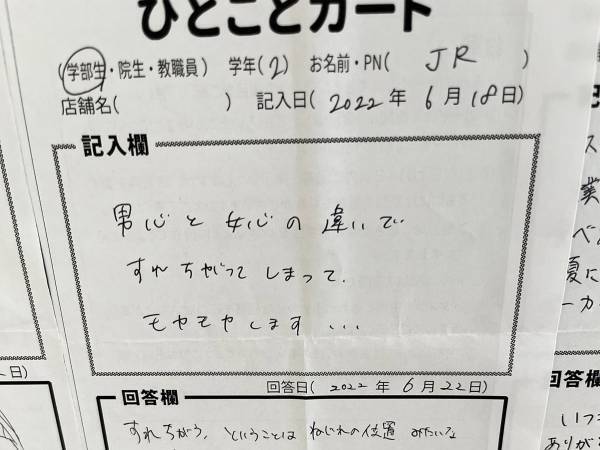 ひとことカード
(学部生・院生・教職員) 学年(2) お名前・PN( JR )
店舗名( ) 記入日( 2022 年 6 月 18 日)
記入欄
男心と女心の違いで
すれちがってしまって、
モヤモヤします...
回答日( 2022 年 6 月 22 日)
回答欄
すれちがう、ということは ねじれの位置 みたいな
日)
夏に
ーカー
回答欄
いつも
ありが